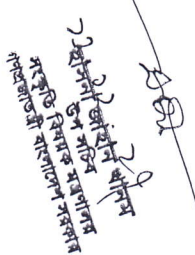 হাসনা জাহান খানম
উপ সচিব
সংস্কৃতি বিষয়ক মন্ত্রণালয়
গণপ্রজাতন্ত্রী বাংলাদেশ সরকার